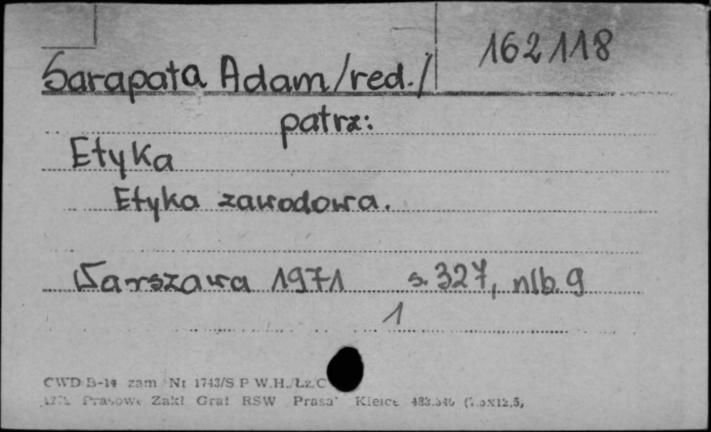 162118
Sarapata Adam/red./
patrz:
Etyka
Etyka zawodowa.
Warszawa 1971 s. 327, nlb. 9
1
CWD B-14 zam Nr 1743/S P W.H./Łz.C
Prasowe Zakł Graf RSW Prasa" Kielce